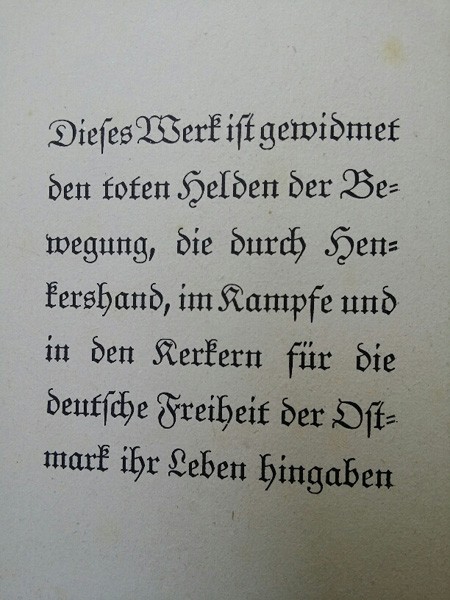 Dieses Werk ist gewidmet
den toten Helden der Be-
wegung, die durch Hen-
kershand, im Kampfe und
in den Kerkern für die
deutsche Freiheit der Ost-
mark ihr Leben hingaben